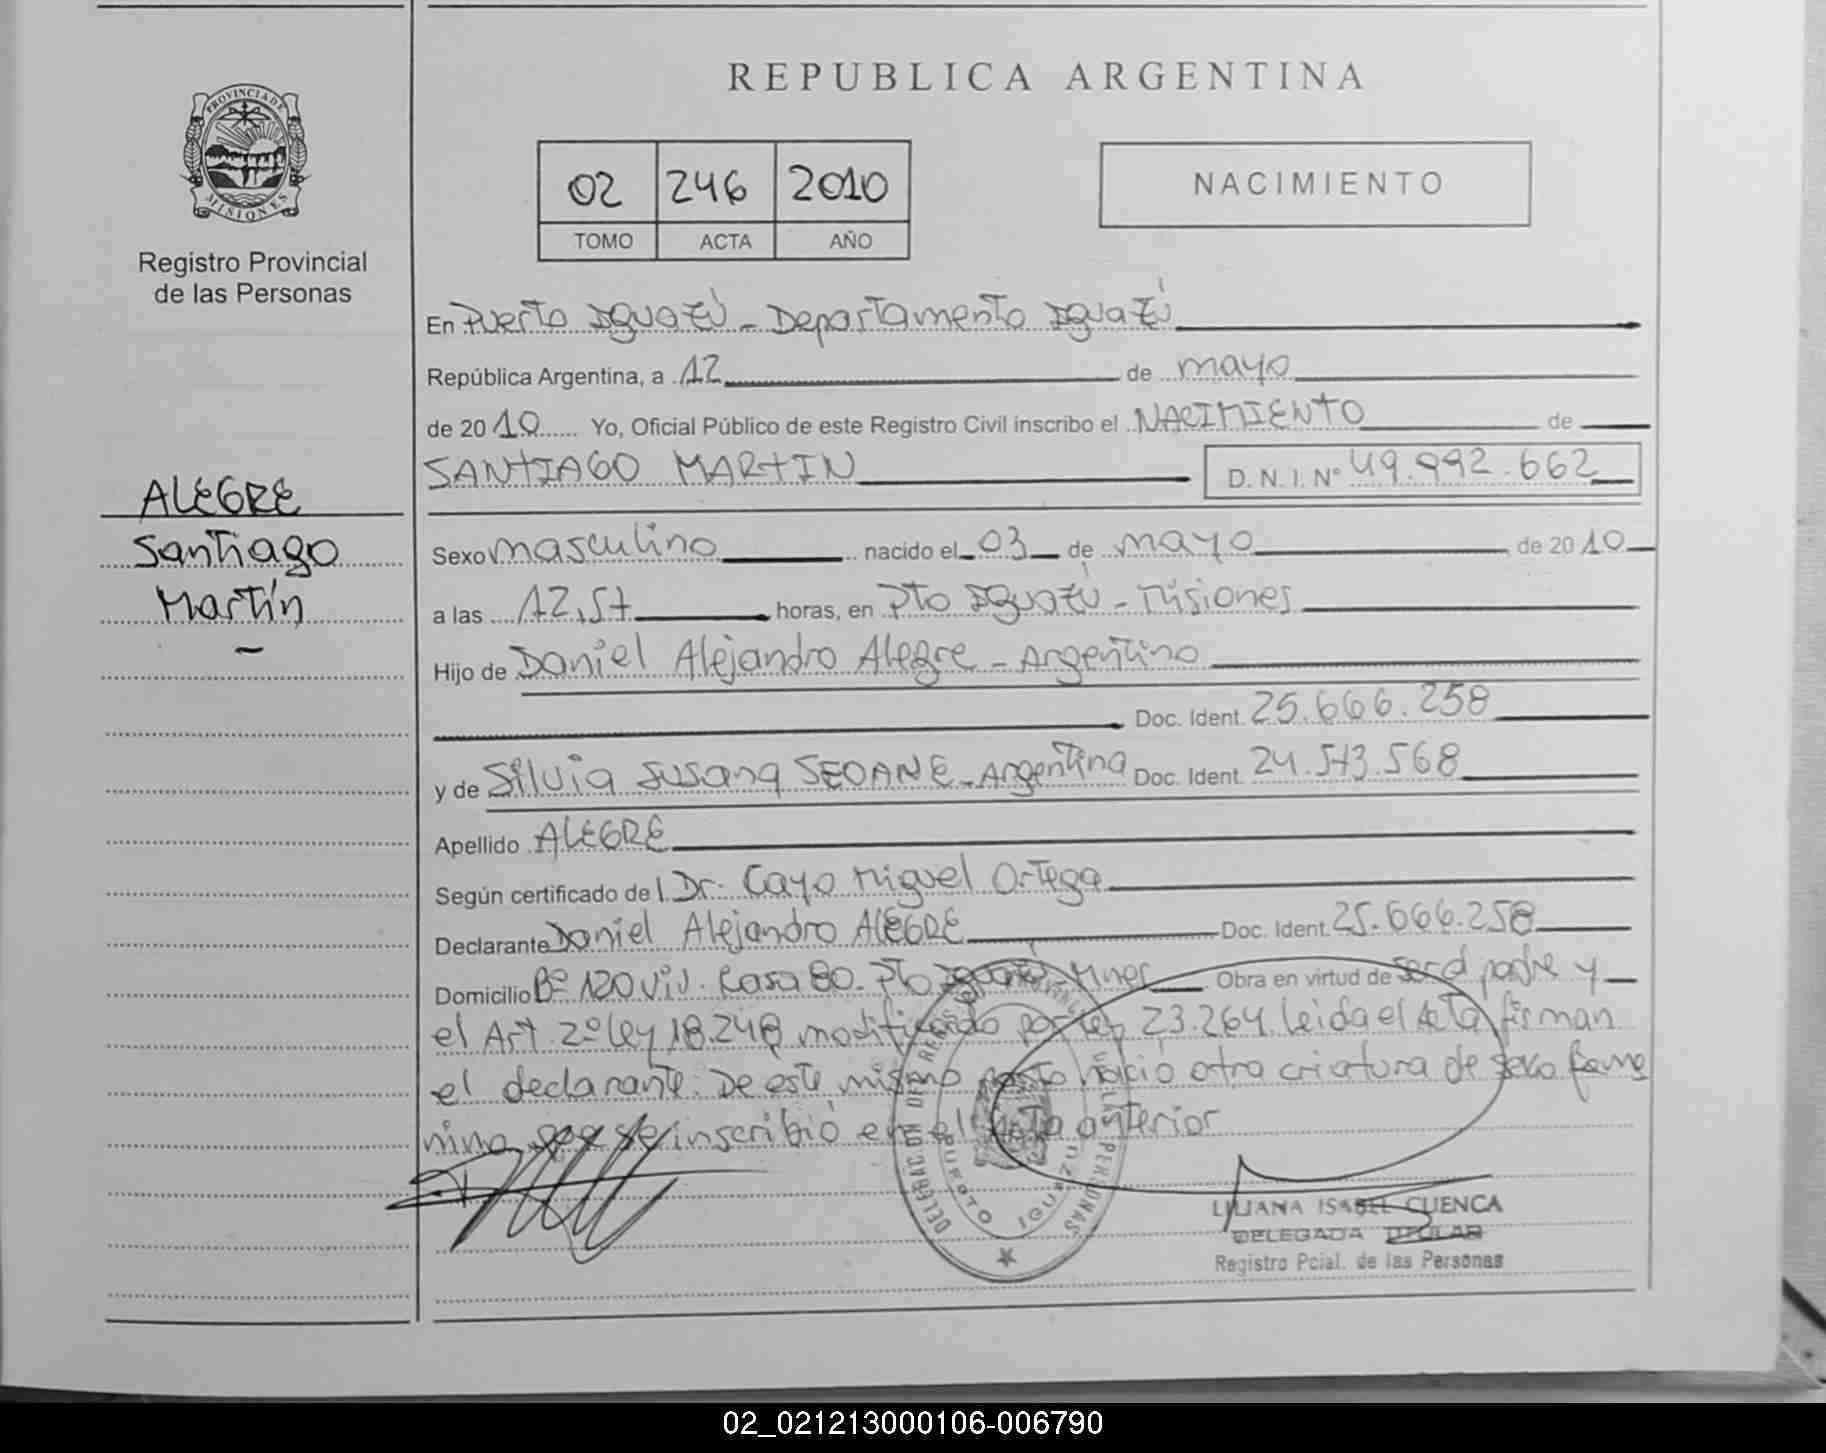 REPUBLICA ARGENTINA
PROVINCIA DE
MISIONES
Registro Provincial
de las Personas
02 246 2010
TOMO ACTA AÑO
NACIMIENTO
En Puerto Iguazú - Departamento Iguazú
República Argentina, a 12 de mayo
de 2010 Yo, Oficial Público de este Registro Civil inscribo el NACIMIENTO de
SANTIAGO MARTIN D.N.I. Nº 49.992.662
ALEGRE
Santiago
Martín
Sexo masculino nacido el 03 de mayo de 2010
a las 12,57 horas, en Pto Iguazú - Misiones
Hijo de Daniel Alejandro Alegre - Argentino
Doc. Ident. 25.666.258
y de Silvia Susana SEOANE - Argentina Doc. Ident. 24.573.568
Apellido ALEGRE
Según certificado de l Dr. Cayo Miguel Ortega
Declarante Daniel Alejandro ALEGRE Doc. Ident. 25.666.258
Domicilio Bº 120 Viv. Casa 80 - Pto Iguazú, Mnes Obra en virtud de ser el padre y
el Art. 2º ley 18.248 modificando por ley 23.264. leida el Acta firman
el declarante. De este mismo parto nació otra criatura de sexo feme
nino que se inscribió en el Acta anterior
DELEGACION DE REG PROVINCIAL DE LAS PERSONAS
PUERTO IGUAZU
LILIANA ISABEL CUENCA
DELEGADA TITULAR
Registro Pcial. de las Personas
02_021213000106-006790